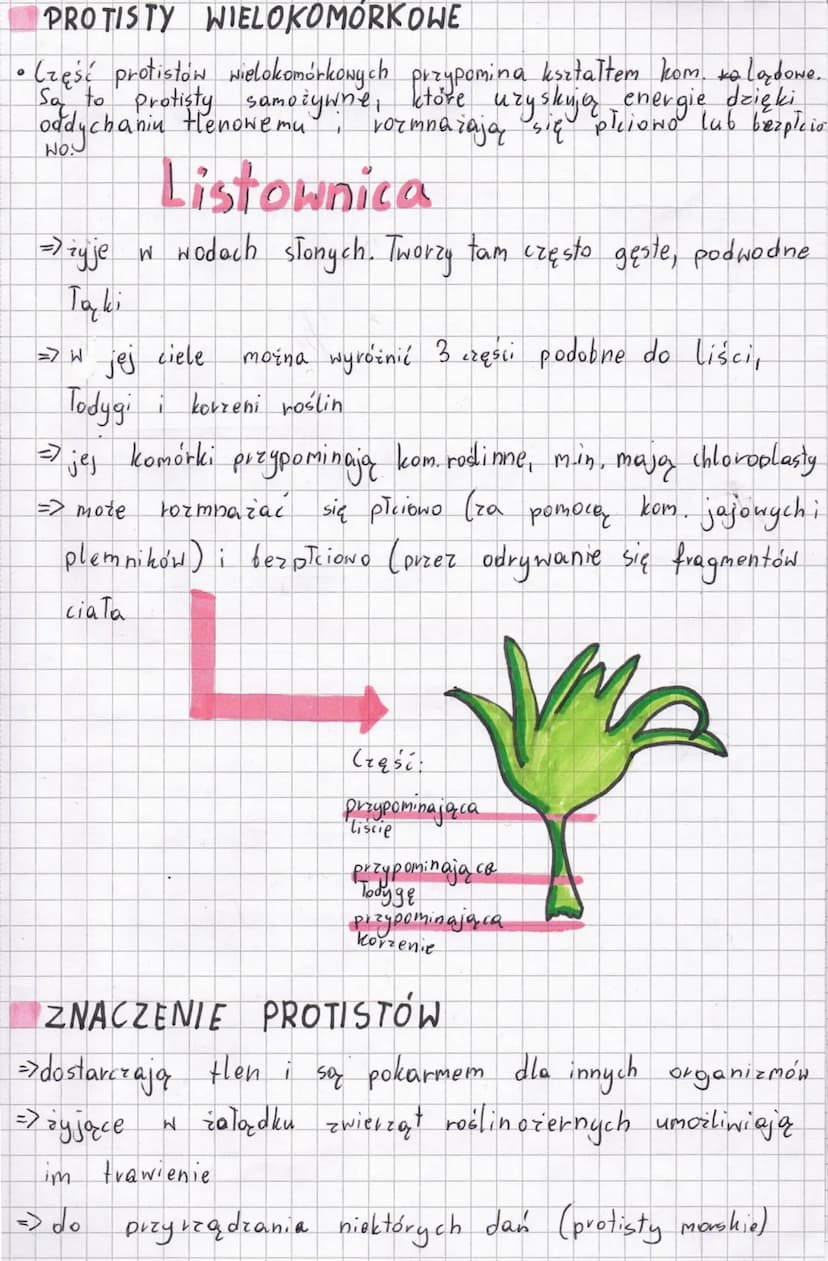 PROTISTY WIELOKOMÓRKOWE
• Część protistów wielokomórkowych przypomina kształtem kom. lądowe.
Są to protisty samożywne, które uzyskują energie dzięki
oddychaniu tlenowemu i rozmnażają się płciowo lub bezpłcio
wo.
Listownica
=> żyje w wodach słonych. Tworzy tam często gęste, podwodne
łąki
=> w jej ciele można wyróżnić 3 części podobne do liści,
łodygi i korzeni roślin
=> jej komórki przypominają kom. roślinne, m.in. mają chloroplasty
=> może rozmnażać się płciowo (za pomocą kom. jajowych i
plemników) i bezpłciowo (przez odrywanie się fragmentów
ciała
Część:
przypominająca
liście
przypominająca
łodygę
przypominająca
korzenie
ZNACZENIE PROTISTÓW
=> dostarczają tlen i są pokarmem dla innych organizmów
=> żyjące w żołądku zwierząt roślinożernych umożliwiają
im trawienie
=> do przyrządzania niektórych dań (protisty morskie)